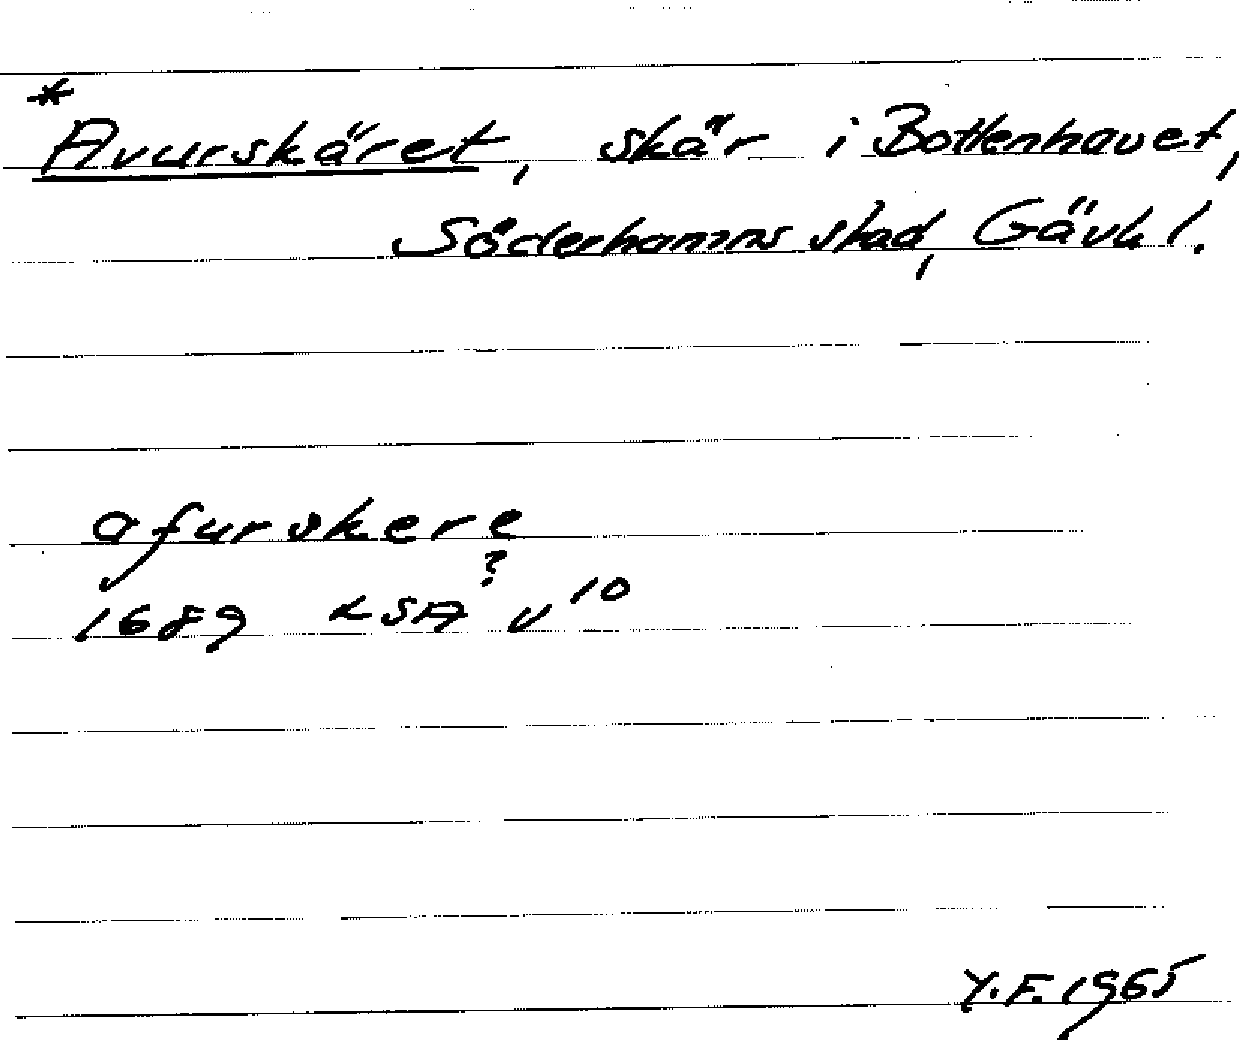 *
Avurskäret, skär i Bottenhavet,
Söderhamns stad, Gävle l.
afurskere
?
1689 LSA v10
Y.F. 1965